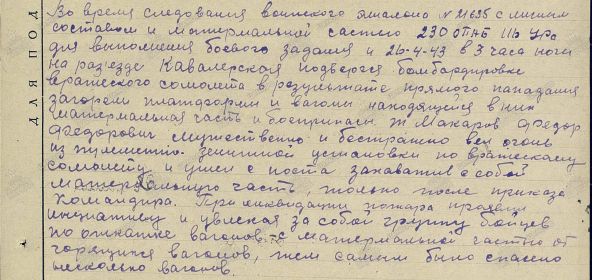 ДЛЯ ПОД
Во время следования воинского эшелона № 21635 с личным
составом и материальной частью 230 ОПАБ 116 Ура
для выполнения боевого задания и 26-4-43 в 3 часа ночи
на разъезде Кавалерская подвергся бомбардировке
вражеского самолета в результате прямого попадания
загорели платформы и вагоны находящейся в них
материальная часть и боеприпасы. т. Макаров Федор
Федорович мужественно и бестрашно вел огонь
из пулеметно-зенитной установки по вражескому
самолету и ушел с поста захватив с собой
материальную часть, только после приказа
Командира. При ликвидации пожара проявил
инициативу и увлекая за собой группу бойцев
по откатке вагонов с материальной частью от
горящихся вагонов, тем самым было спасено
несколько вагонов.